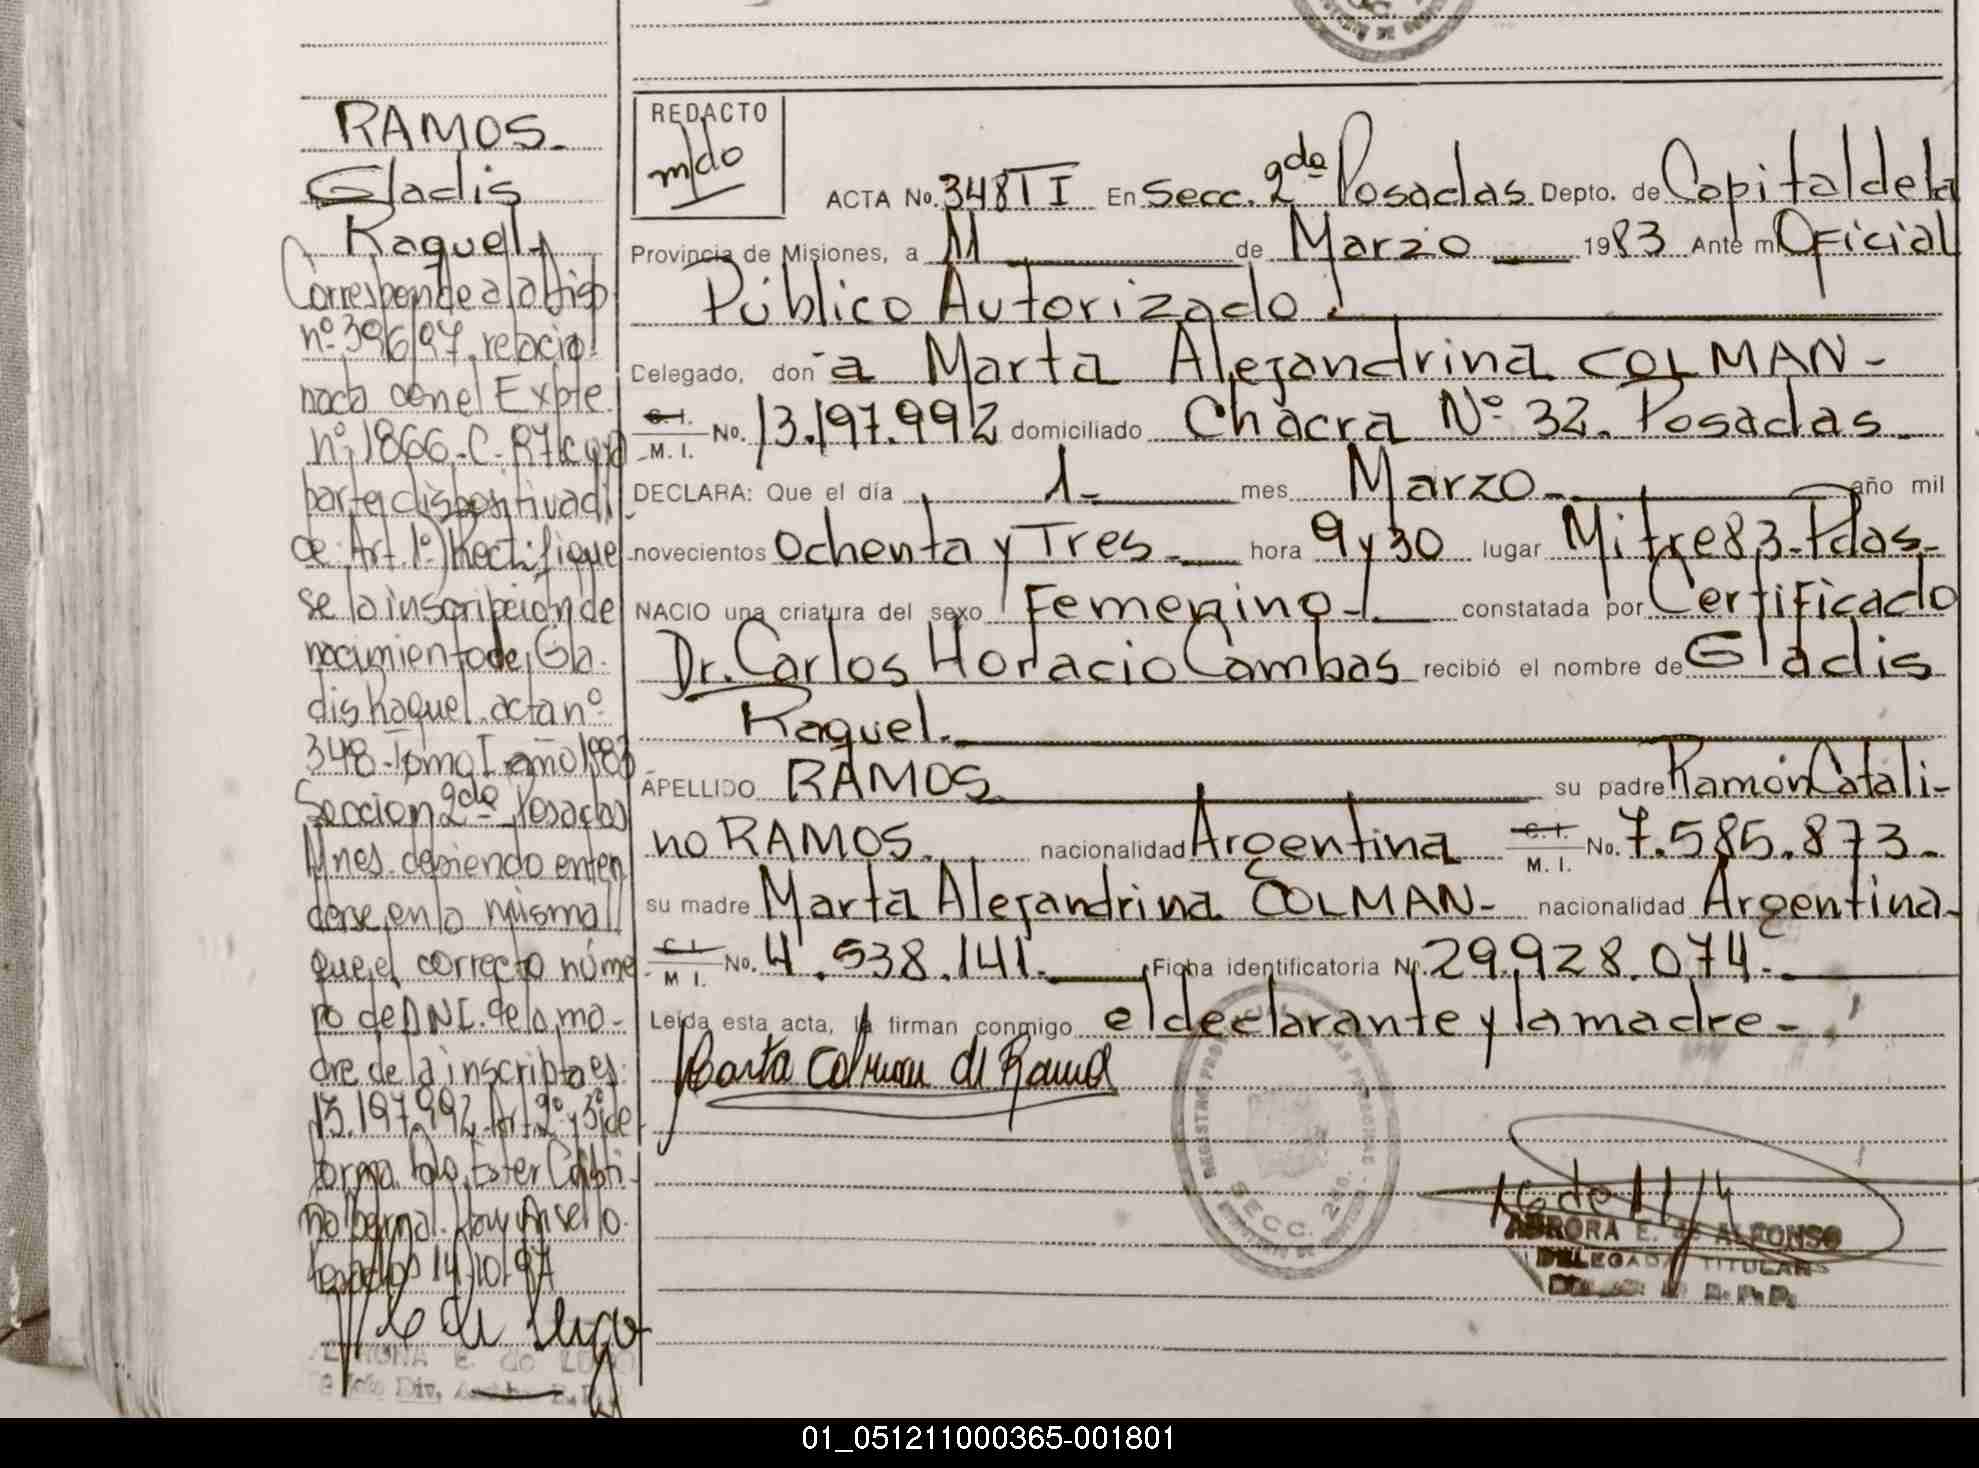 RAMOS.
Gladis
Raquel.
Corresponde a la Disp
nº 396/97 relacio
nada con el Expte.
nº 1866-C-97 cuya
parte dispositiva di
ce: Art. 1º) Rectifique
se la inscripción de
nacimiento de Gla-
dis Raquel acta nº
348-Tomo I año 1983
Seccion 2da Posadas
Mnes. debiendo enten
derse en la misma
que el correcto núme
ro de DNI. de la ma-
dre de la inscripta es:
13.197.992 Art. 2º y 3º de
forma. Fdo. Ester Cristi-
na Bernal. Hay un sello.
Posadas 14/10/97
REDACTO
m/do
ACTA No. 348 T I En Secc. 2da Posadas Depto. de Capital de la
Provincia de Misiones, a 11 de Marzo 1983 Ante mi Oficial
Público Autorizado.
Delegado, don a Marta Alejandrina COLMAN-
C. I. M. I. No. 13.197.992 domiciliado Chacra Nº 32. Posadas.
DECLARA: Que el día 1- mes Marzo- año mil
novecientos Ochenta y Tres- hora 9 y 30 lugar Mitre 83-Pdas-
NACIO una criatura del sexo Femenino- constatada por Certificado
Dr. Carlos Horacio Cambas recibió el nombre de Gladis
Raquel.
APELLIDO RAMOS su padre Ramón Catali-
no RAMOS. nacionalidad Argentina C. I. M. I. No. 7.585.873-
su madre Marta Alejandrina COLMAN- nacionalidad Argentina-
C. I. M I. No. 4.538.141. Ficha identificatoria Nº. 29.928.074-
Leida esta acta, la firman conmigo el declarante y la madre-
Marta Colman de Ramos
SECC. 2da.
AURORA E. de ALFONSO
DELEGADA TITULAR
01_051211000365-001801